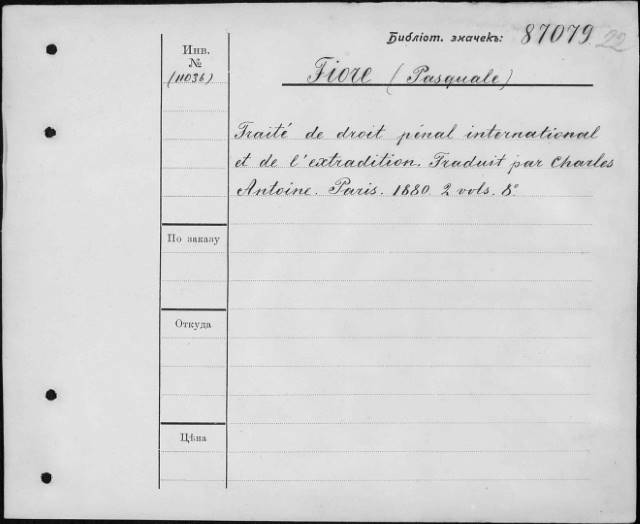 Библіот. значекъ: 87079 22
Инв.
№
(11036)
Fiore (Pasquale)
Traité de droit pénal international
et de l'extradition. Traduit par Charles
Antoine. Paris. 1880. 2 vols. 8º
По заказу
Откуда
Цѣна